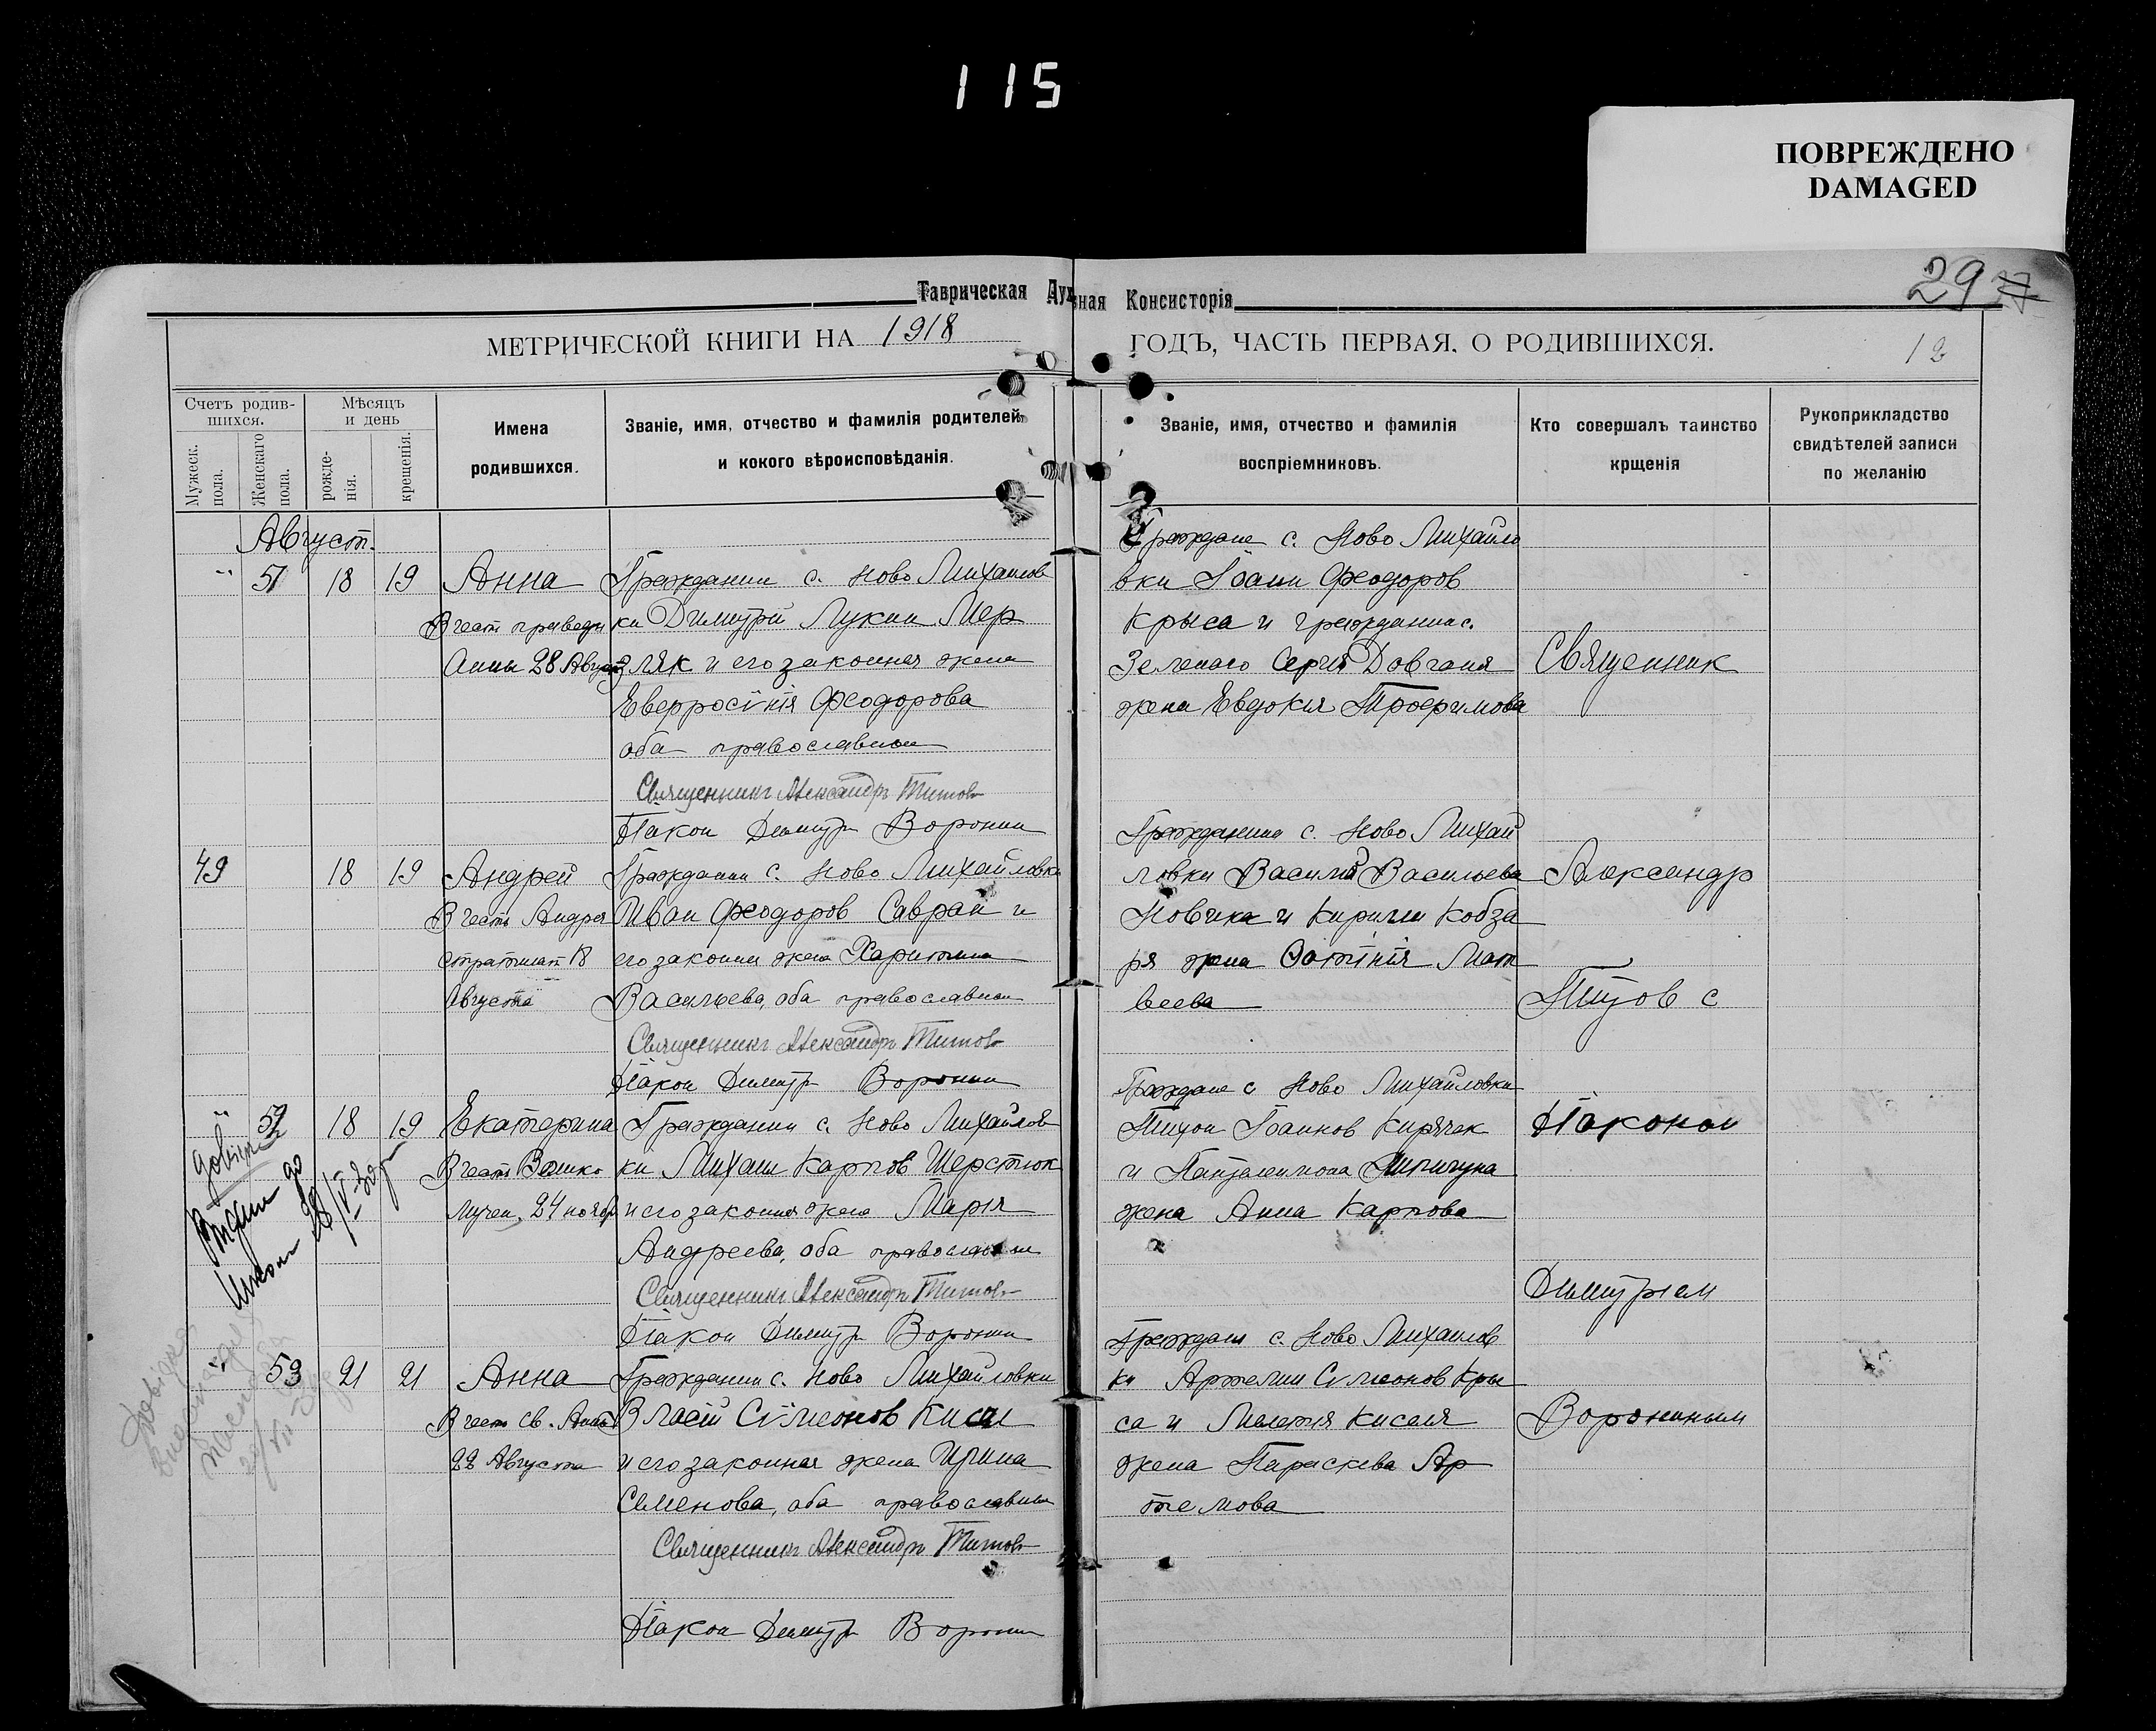 115
ПОВРЕЖДЕНО
DAMAGED
29 27
Таврическая Духовная Консисторія
МЕТРИЧЕСКОЙ КНИГИ НА 1918 ГОДЪ, ЧАСТЬ ПЕРВАЯ, О РОДИВШИХСЯ.
12
Счетъ родив-
шихся.
Мужеск.
пола.
Женскаго
пола.
Мѣсяцъ
и день
рожде-
нія.
крещенія.
Имена
родившихся.
Званіе, имя, отчество и фамилія родителей
и кокого вѣроисповѣданія.
Званіе, имя, отчество и фамилія
воспріемниковъ.
Кто совершалъ таинство
крщенія
Рукоприкладство
свидѣтелей записи
по желанію
Август.
51 18 19 Анна
В чест праведн
Анны 28 Август
Гражданин с. Ново Михайлов
ки Димитрій Лукин Мер
зляк и его законная жена
Евфросінія Феодорова
оба православные
Священникъ Александръ Титовъ
Діакон Димитр Воронин
Граждане с. Ново Михайло
вки Іоанн Феодоров
Крыса и гражданина с.
Зеленаго Сергія Довганя
жена Евдокія Трофимова
49 18 19 Андрей
В честь Андрея
стратилат 18
Августа
Гражданин с. Ново Михайловки
Иван Феодоров Савран и
его законная жена Харитина
Васильева, оба православные
Священникъ Александръ Титовъ
Діакон Димитр Воронин
Гражданина с. Ново Михай
ловки Василій Васильева
Новика и Кирилла Кобза
ря жена Фотінія Мат
веева
52 18 19 Екатерина
В чест Велико
мучен. 24 нояб
Гражданин с. Ново Михайлов
ки Михаил Карпов Шерстюк
и его законная жена Марія
Андреева, оба православные
Священникъ Александръ Титовъ
Діакон Димитр Воронин
Граждане с Ново Михайловки
Тихон Іоаннов Кирячек
и Панталеимона
жена Анна Карпова
53 21 21 Анна
В чест св. Анны
22 Августа
Гражданин с. Ново Михайловки
Власій Сімеонов Кисел
и его законная жена Ирина
Семенова, оба православные
Священникъ Александръ Титовъ
Діакон Димитр Воронин
Граждане с. Ново Михайлов
ки Артемии Сімеонов Кры
са и Мелетія Киселя
жена Параскева Ар
темова
Священник
Александр
Титов с
Діаконом
Димитрием
Ворониным